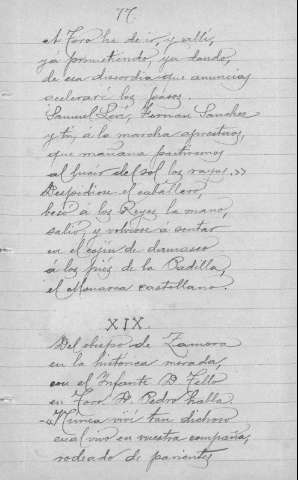 77.
A Toro he de ir, y allí,
ya prometiendo, ya dando,
de esa discordia que anuncias
aceleraré los pasos.
Samuel Leví, Hernan Sanchez
y tú, á la marcha aprestaos,
que mañana partiremos
al lucir del sol los rayos.»
Despidiose el caballero,
besó á los Reyes la mano,
salió, y volviose á sentar
en el cojin de damasco
á los piés de la Padilla,
el Monarca castellano.
XIX.
Del obispo de Zamora
en la histórica morada,
con el Infante D. Tello
en Toro D. Pedro halla.
-«Nunca viví tan dichoso
cual vivo en vuestra compaña,
rodeado de parientes